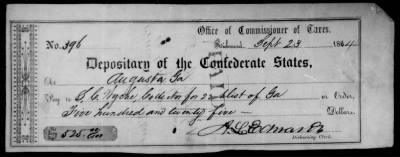 Office of Commissioner of Taxes.
No. 396 Richmond, Sept 23 1864
Depositary of the Confederate States,
At Augusta Ga
Pay to S. C. , Collector for 22 Dist of Ga or Order,
Five hundred and twenty five — Dollars.
$ 525.
Disbursing Clerk.